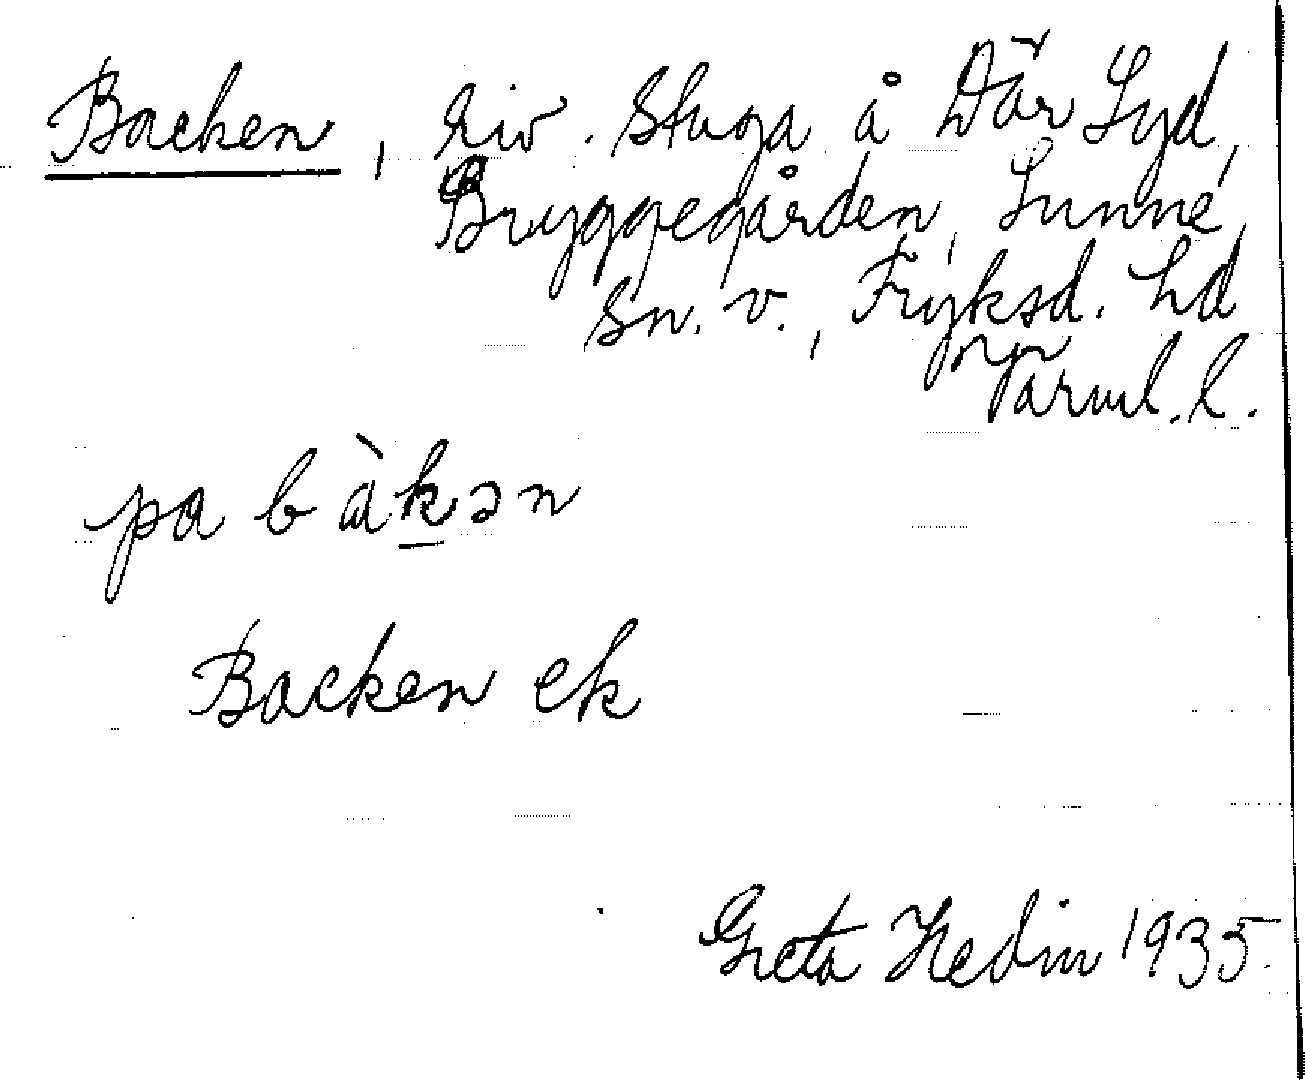 Backen, riv. Stuga å Där Syd,
Bryggegården, Sunne,
Sn. v., Fryksd. hd
Värml. l.
pa bàkən
Backen ek
Greta Hedin 1935.